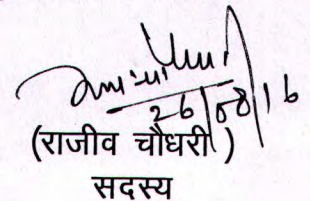 26/08/16
(राजीव चौधरी)
सदस्य